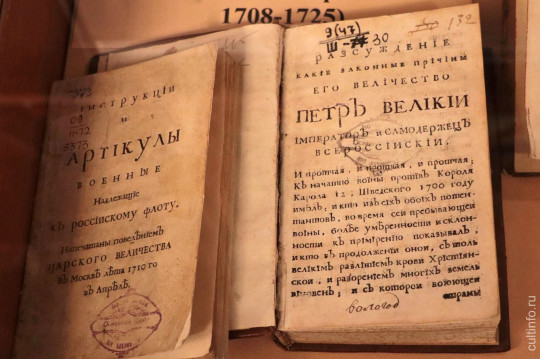 1708-1725)
ИНСТРУКЦIИ
И
АРТIКУЛЫ
ВОЕННЫЕ
НАДЛЕЖАЩIЕ
КЪ РОССIИСКОМУ ФЛОТУ.
Напечатаны повелѣнiемъ
ЦАРСКОГО ВЕЛIЧЕСТВА
въ Москвѣ лѣта 1710 го
въ Апрѣлѣ.
9(47)
Ш-
30
132
РАЗСУЖДЕНIЕ
КАКIЕ ЗАКОННЫЕ ПРIЧIНЫ
ЕГО ВЕЛIЧЕСТВО
ПЕТРЪ ВЕЛIКIИ
IМПЕРАТОРЪ И САМОДЕРЖЕЦЪ
ВСЕРОССIИСКIИ:
И протчая, и протчая, и протчая:
Къ начатию воины протiвъ Короля
Карола 12, Шведского 1700 году
имѣлъ; и кто изъ сiхъ обоiхъ потен-
татовъ, во время сеи пребывающеи
воины, болѣе умѣренности и склон-
ности къ прiмiренiю показывалъ,
и кто въ продолженiи онои, съ толь
велiкiмъ разлiтiемъ крови Хрiстiян-
скои, и разоренiемъ многiхъ земель
вiновенъ; и съ которои воюющеи
страны
вологод
cultinfo.ru